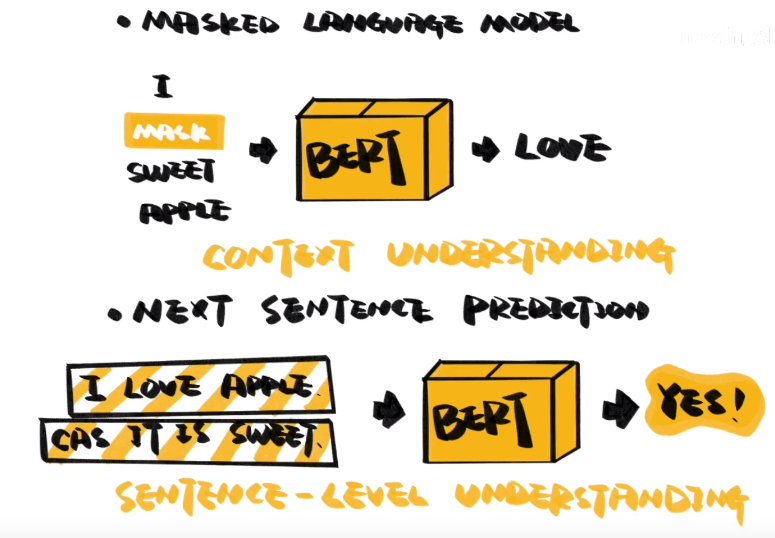 • MASKED LANGUAGE MODEL
I
MASK
SWEET
APPLE
BERT
LOVE
CONTEXT UNDERSTANDING
• NEXT SENTENCE PREDICTION
I LOVE APPLE.
CAS IT IS SWEET.
BERT
YES!
SENTENCE-LEVEL UNDERSTANDING